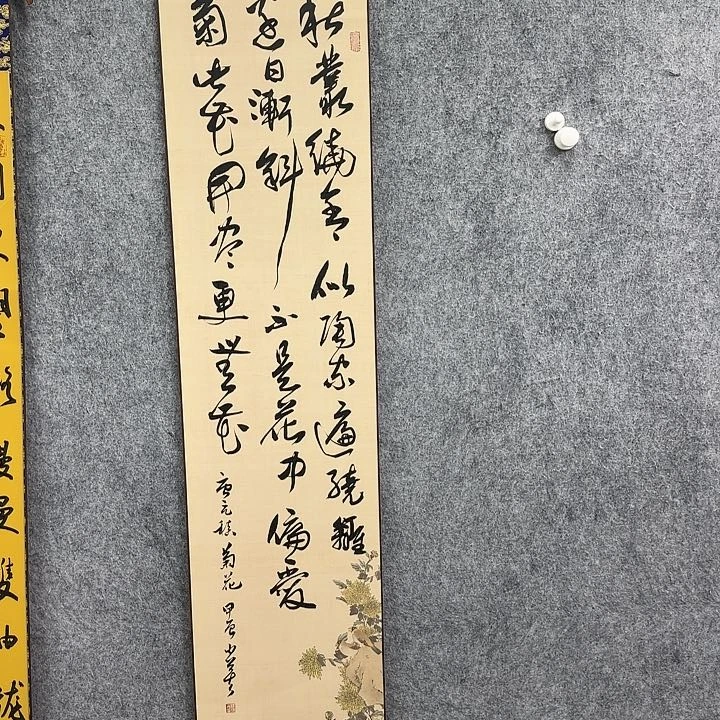 秋叢繞舍似陶家遍繞籬
邊日漸斜不是花中偏愛
菊此花開盡更無花
唐元稹菊花甲辰
漫漫雙袖